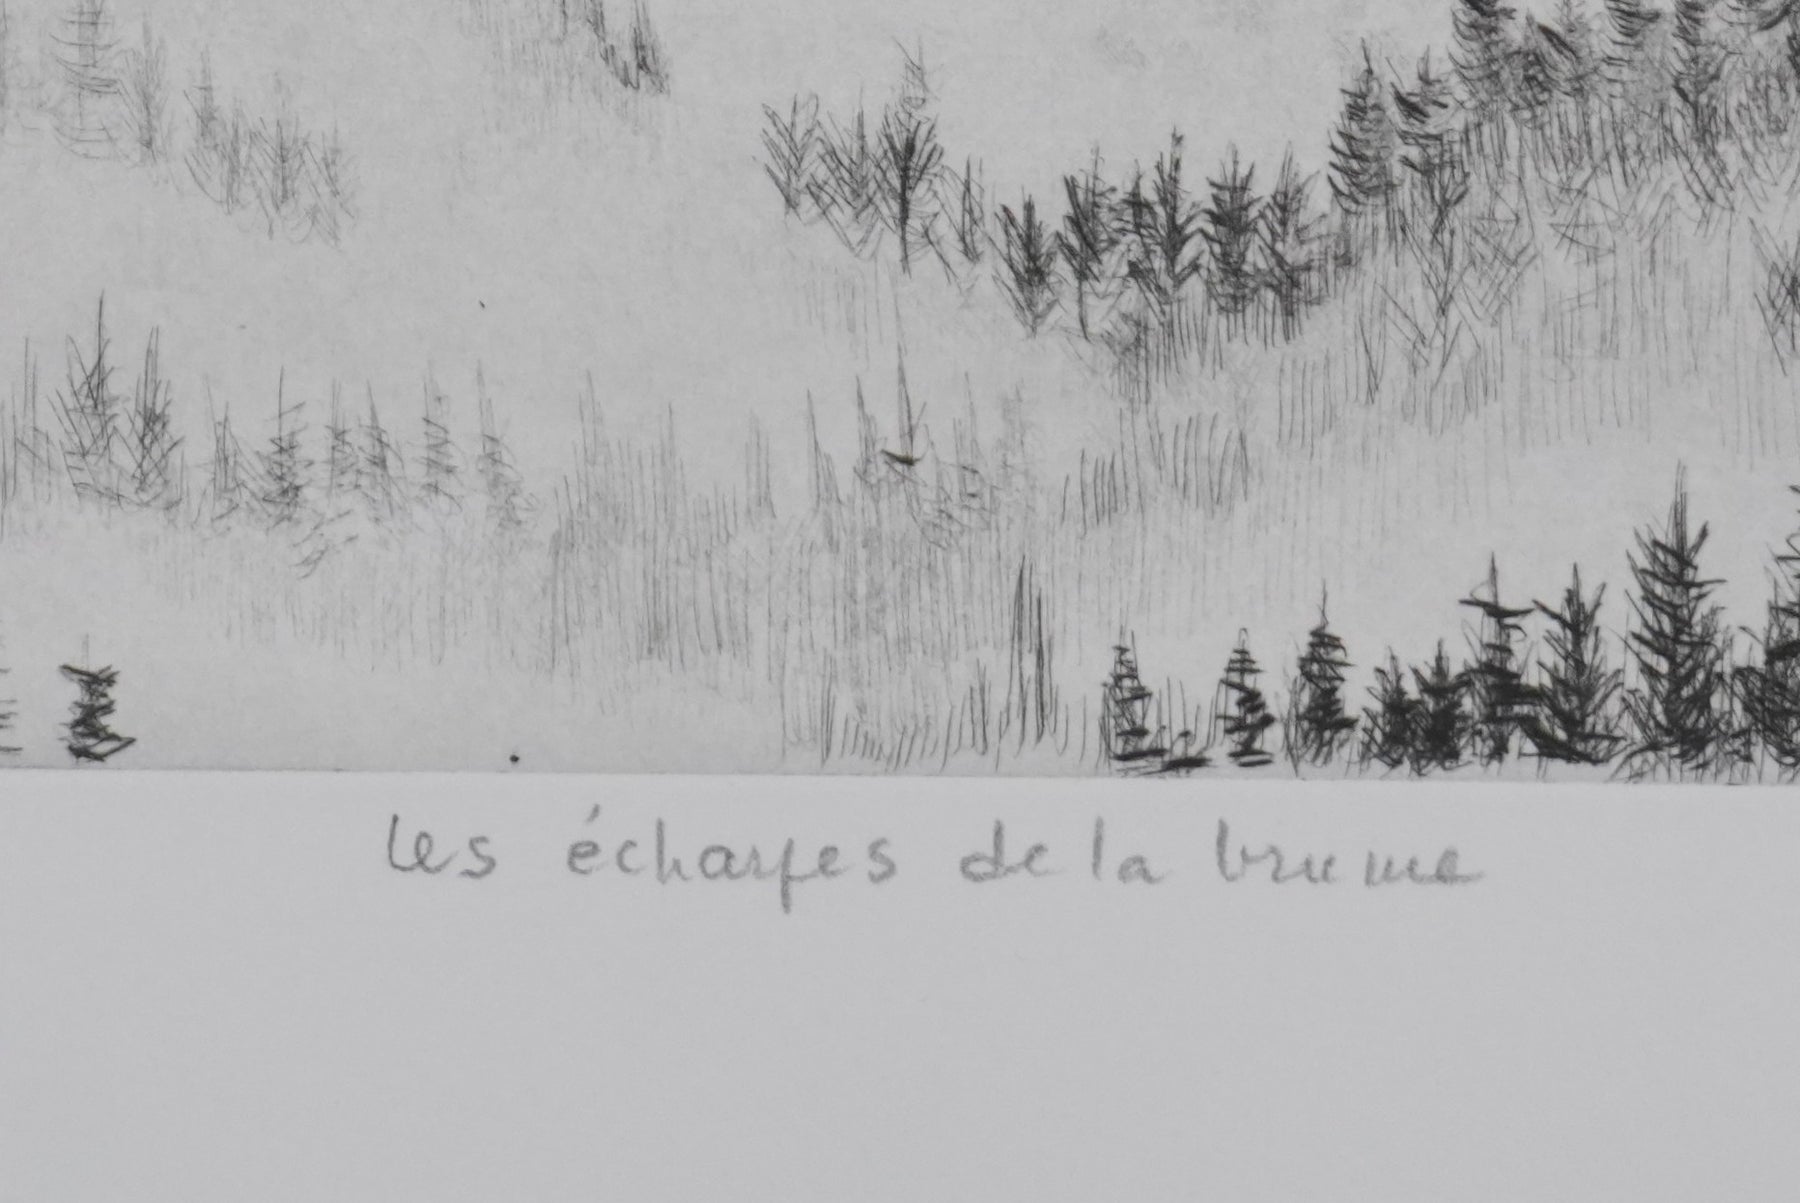 les écharpes de la brume